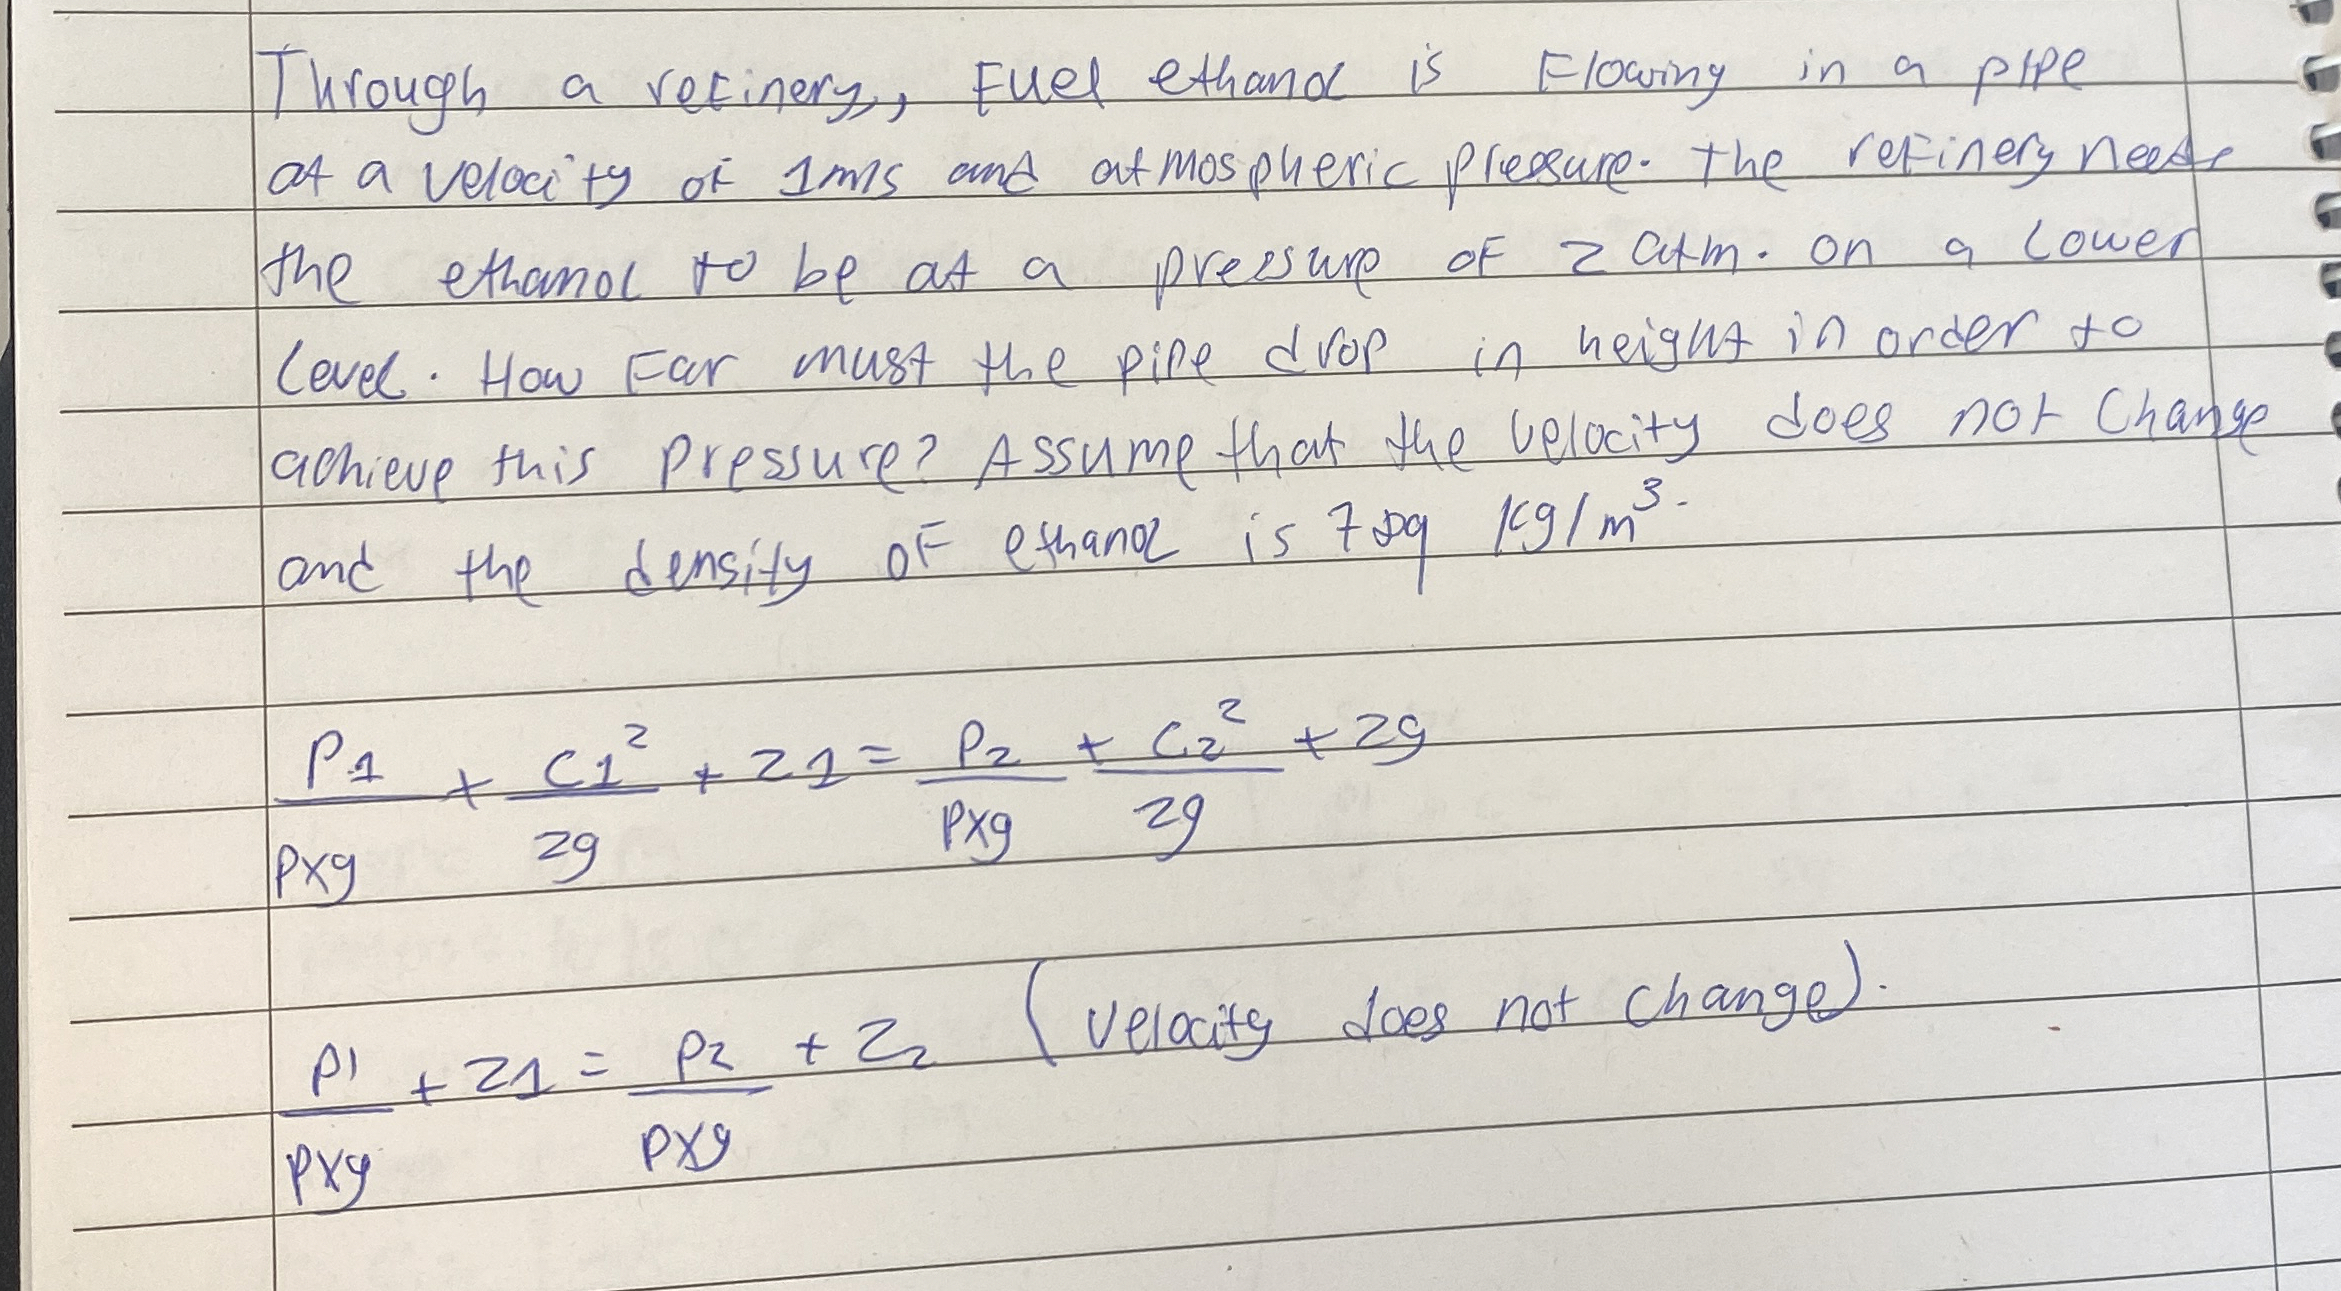 Through a refinery, Fuel ethanol is Flowing in a pipe
at a velocity of 1m/s and atmospheric pressure. The refinery needs
the ethanol to be at a pressure of 2 atm. on a lower
level. How Far must the pipe drop in height in order to
achieve this pressure? Assume that the velocity does not Change
and the density of ethanol is 789 kg/m³.
P1 + C1² + Z1 = P2 + C2² + Zg
ρxg 2g ρxg 2g
P1 + Z1 = P2 + Z2 (velocity does not change).
ρxg ρxg